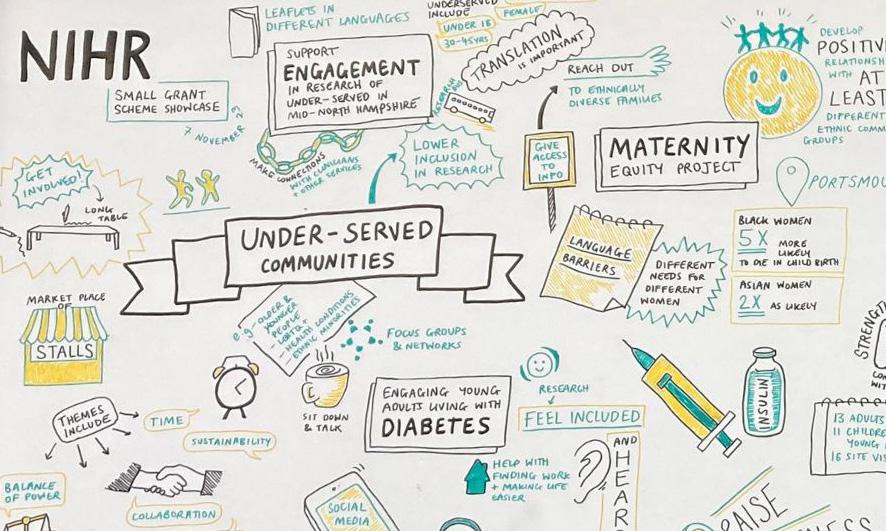 NIHR
SMALL GRANT
SCHEME SHOWCASE
7 NOVEMBER 23
LEAFLETS IN
DIFFERENT LANGUAGES
SUPPORT
ENGAGEMENT
IN RESEARCH OF
UNDER-SERVED IN
MID-NORTH HAMPSHIRE
UNDERSERVED
INCLUDE
UNDER 18
FEMALE
30-45YRS
TRANSLATION
IS IMPORTANT
RESEARCH BUS
REACH OUT
TO ETHNICALLY
DIVERSE FAMILIES
DEVELOP
POSITIV
RELATIONSH
WITH AT
LEAST
DIFFERENT
ETHNIC COMM
GROUPS
MAKE CONNECTIONS
WITH CLINICIANS
+ OTHER SERVICES
LOWER
INCLUSION
IN RESEARCH
GIVE
ACCESS
TO
INFO
MATERNITY
EQUITY PROJECT
PORTSMOU
GET
INVOLVED!
LONG
TABLE
UNDER-SERVED
COMMUNITIES
LANGUAGE
BARRIERS
DIFFERENT
NEEDS FOR
DIFFERENT
WOMEN
BLACK WOMEN
5X MORE
LIKELY
TO DIE IN CHILD BIRTH
ASIAN WOMEN
2X AS LIKELY
MARKET PLACE
OF
STALLS
e.g - OLDER &
YOUNGER
PEOPLE
- LGBTQ+
- HEALTH CONDITIONS
- ETHNIC MINORITIES
FOCUS GROUPS
& NETWORKS
SIT DOWN
& TALK
ENGAGING YOUNG
ADULTS LIVING WITH
DIABETES
RESEARCH
FEEL INCLUDED
AND
HEAR
INSULIN
STRENGTH
CO
WIT
13 ADULTS
11 CHILDRE
YOUNG
16 SITE VIS
THEMES
INCLUDE
TIME
SUSTAINABILITY
BALANCE
OF POWER
COLLABORATION
SOCIAL
MEDIA
HELP WITH
FINDING WORK
+ MAKING LIFE
EASIER
RAISE